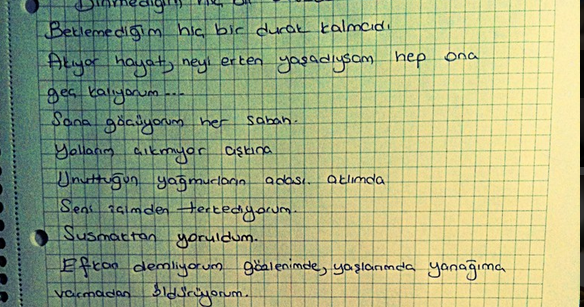 Dinmediğim hiç bir
Beklemediğim hiç bir durak kalmadı
Akıyor hayat, neyi erken yaşadıysam hep ona
geç kalıyorum...
Sana göçüyorum her sabah.
Yollarım çıkmıyor aşkına
Unuttuğun yağmurların adası aklımda
Seni içimden terkediyorum.
Susmaktan yoruldum.
Efkan demliyorum gözlerimde, yaşlarımda yanağıma
varmadan öldürüyorum.